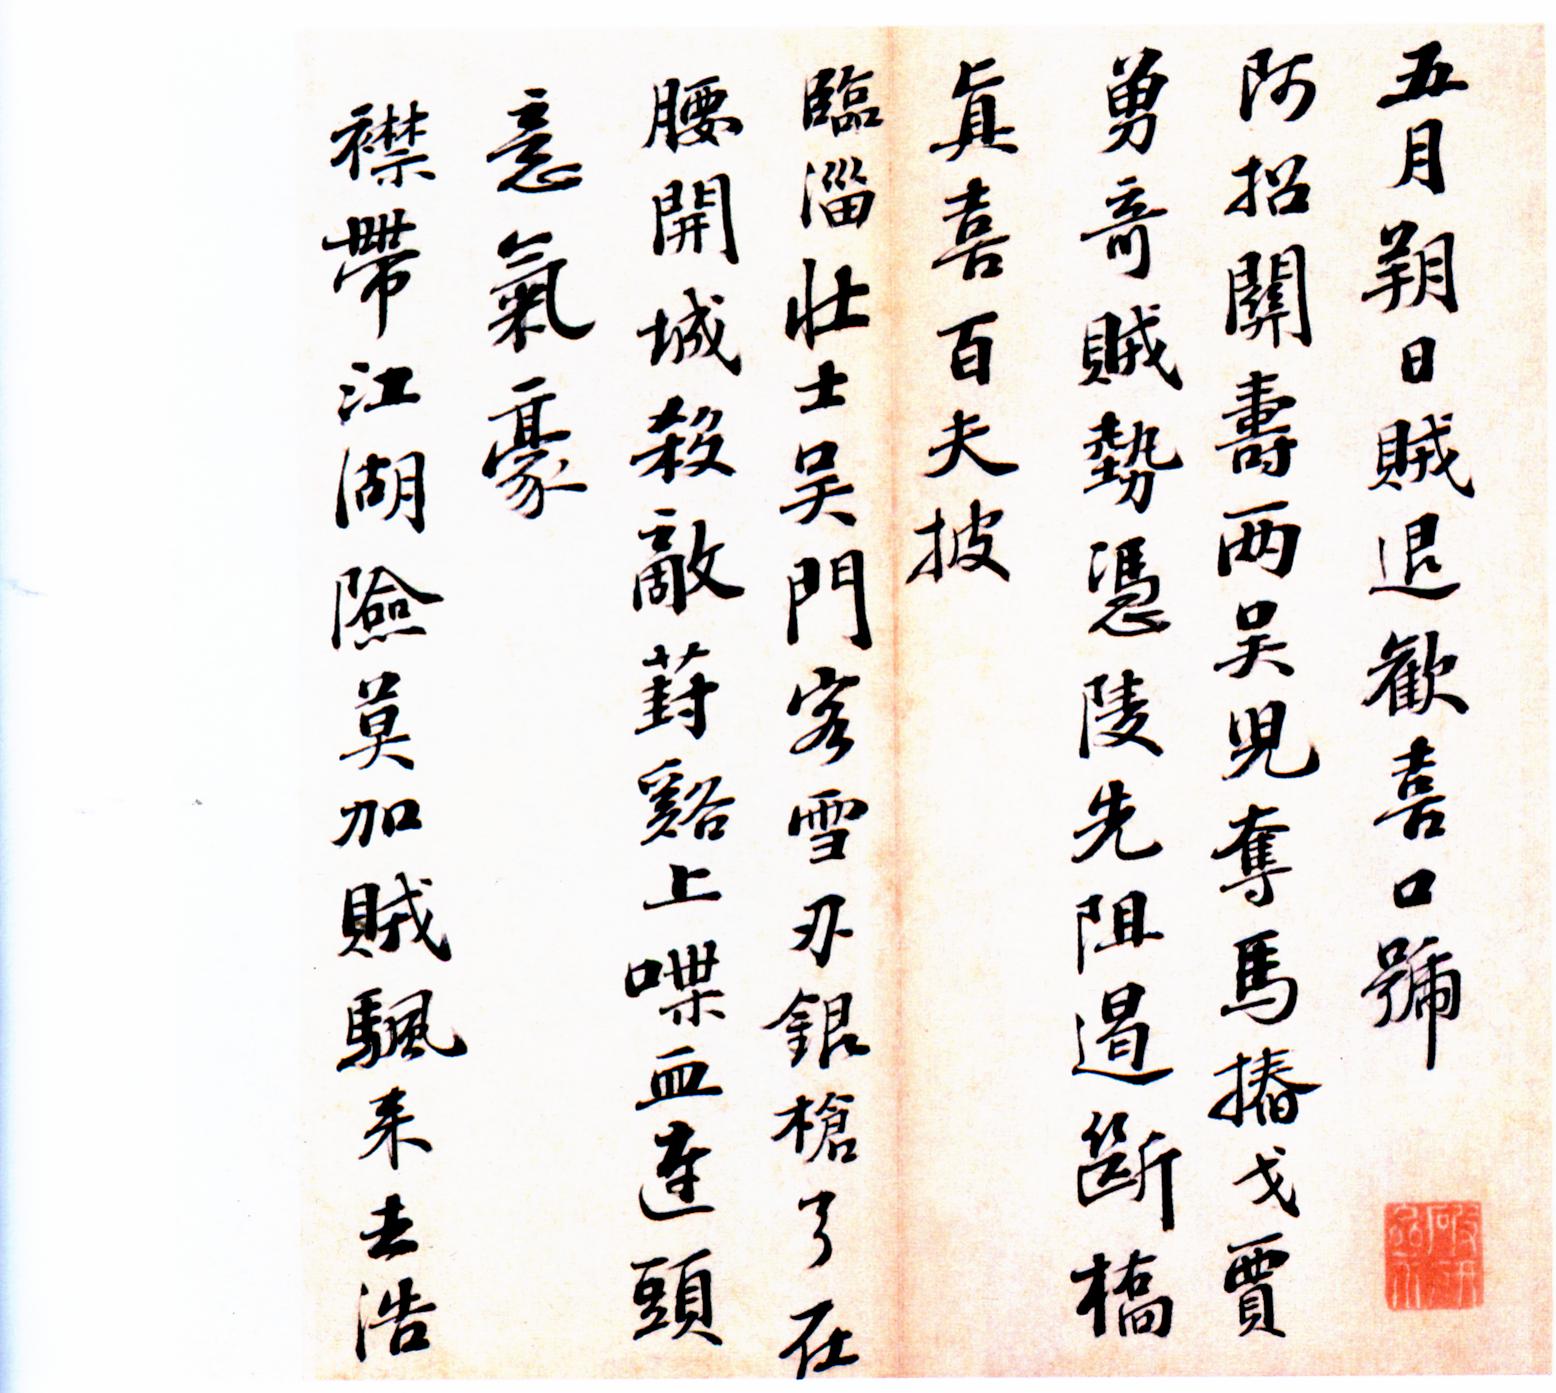 五月朔日賊退歡喜口號
阿招關壽兩吴兒奪馬摏戈賈
勇奇賊勢憑陵先阻遏斷橋
眞喜百夫披
臨淄壯士吴門客雪刃銀槍弓在
腰開城殺敵葑谿上喋血蓮頭
意氣豪
襟帶江湖險莫加賊颿来去浩